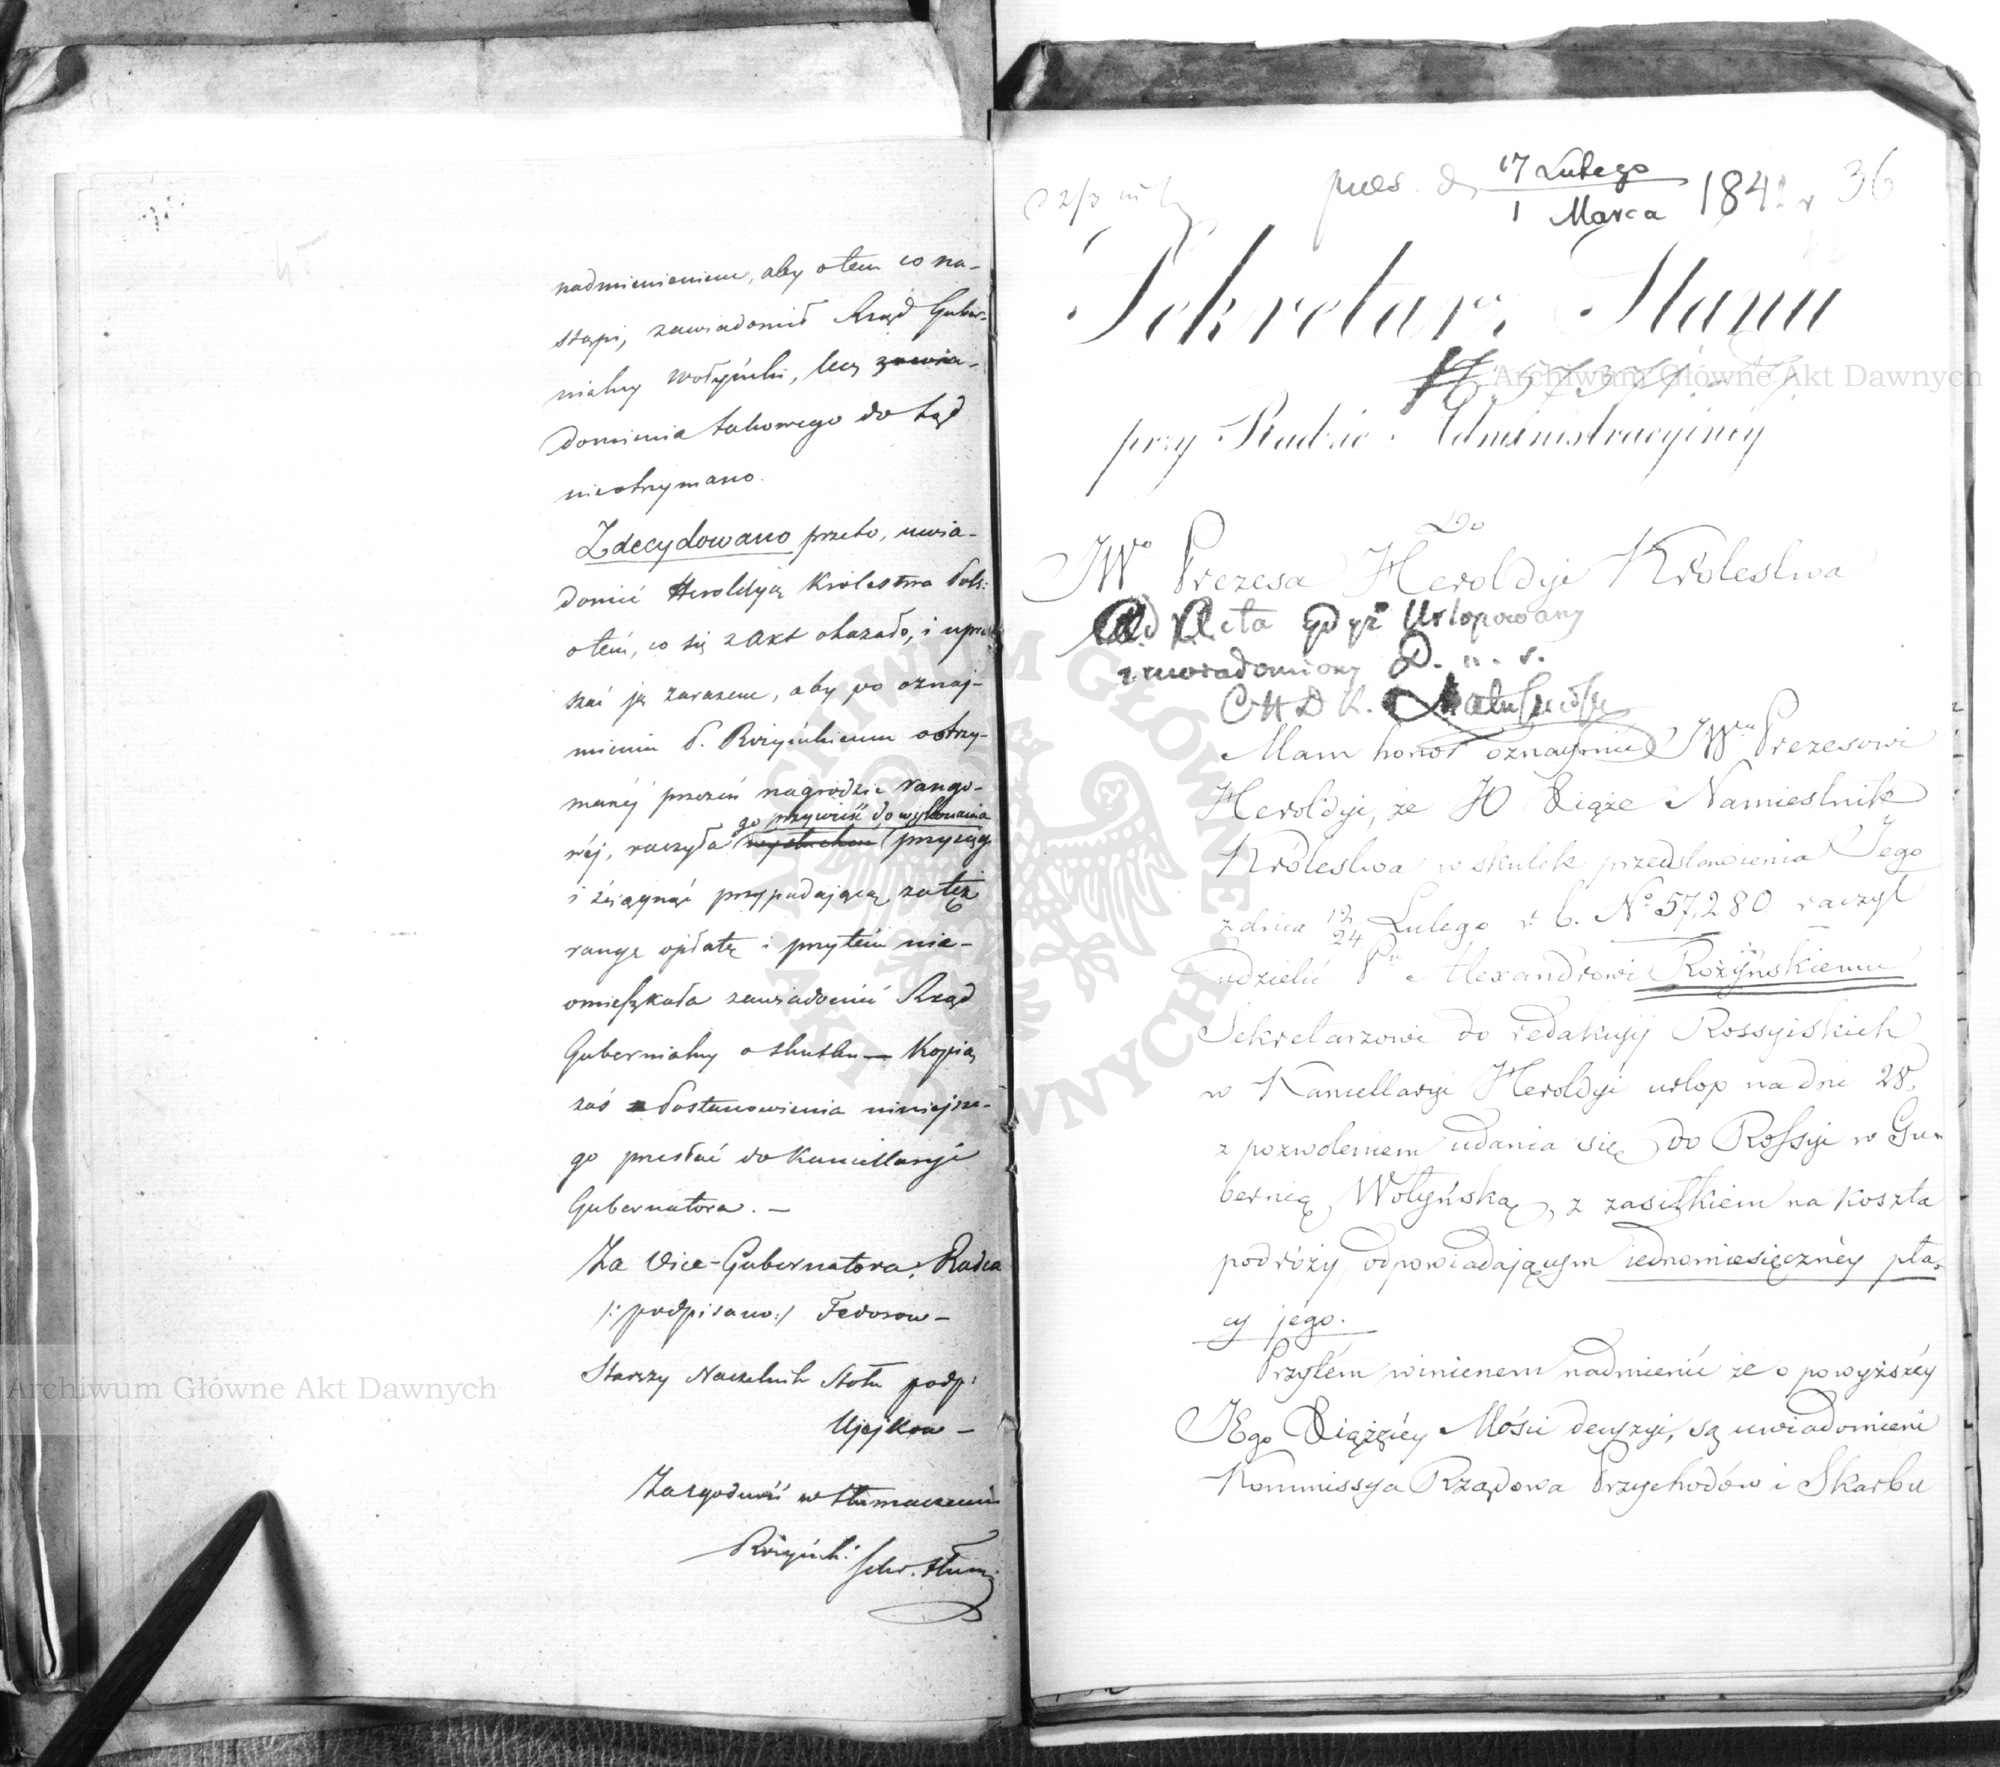 nadmienieniem, aby o tem co na-
stąpi, zawiadomił Rząd Guber-
nialny Wołyński, lecz zawia-
domienia takowego do tąd
nieotrzymano.
Zdecydowano przeto, uwia-
domić Heroldyą Królestwa Pols:
o tém, co się z Akt okazało, i upra-
szać ją zarazem, aby po oznaj-
mieniu P. Rożyńskiemu o otrzy-
manéj przezeń nagrodzie rango-
go przywieść do wykonania
wéj, raczyła wysłuchać przysięgę
i ściągnąć przypadającą za tęż
rangę opłatę i przytém nie-
omieszkała zawiadomić Rząd
Gubernialny o skutku — Kopią
zaś Postanowienia niniejsze-
go przesłać do Kancellaryi
Gubernatora. —
Za Vice-Gubernatora, Radca
/: podpisano:/ Fedorow —
Starszy Naczelnik Stołu podp:
Ujejkow —
Za zgodność w tłumaczeniu
Rożyński Sekr. tłum.
pres. d. 17 Lutego / 1 Marca 1841 r 36
Sekretarz Stanu
N 57371
przy Radzie Administracyjney
Do
JWo Prezesa Heroldyi Królestwa
Ad Acta gdyż Urlopowany
zawiadomiony
Mam honor oznaymić JWmu Prezesowi
Heroldyi, że JO Xiąże Namiestnik
Królestwa w skutek przedstawienia Jego
z dnia 12/24 Lutego r b. No 57,280 raczył
udzielić Pu Alexandrowi Rożyńskiemu
Sekretarzowi do redakcyj Rossyiskich
w Kancellaryi Heroldyi urlop na dni 28,
z pozwoleniem udania się do Rossyi w Gu-
bernią Wołyńską, z zasiłkiem na koszta
podróży, odpowiadającym jednomiesięcznéy pła-
cy jego.
Przytém winienem nadmienić że o powyższéy
JEgo Xiążęcéy Mości decyzyi, są uwiadomieni
Kommissya Rządowa Przychodów i Skarbu
Archiwum Główne Akt Dawnych
Archiwum Główne Akt Dawnych
ARCHIWUM GŁÓWNE AKT DAWNYCH